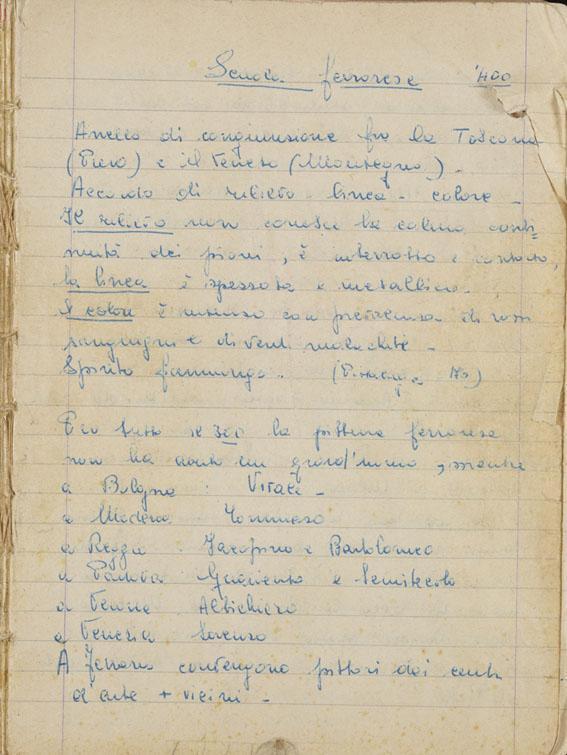 Scuola ferrarese '400
Anello di congiunzione fra la Toscana
(Piero) e il Veneto (Mantegna).
Accordo di rilievo linea - colore -
Il rilievo non conosce la calma conti=
nuità dei piani, è interrotto e contorto,
la linea è spezzata e metallica.
Il colore è intenso con prevalenza di rossi
sanguigni e di verdi malachite -
Spirito fiammingo. (
Per tutto il 300 la pittura ferrarese
non ha avuto un grand'uomo, mentre
a Bologna : Vitale -
a Modena Tommaso
a Reggio Jacopino e Bartolomeo
a Padova Guariento e Semitecolo
a Verona Altichiero
a Venezia Lorenzo
A Ferrara convengono pittori dai centri
d'arte + vicini -